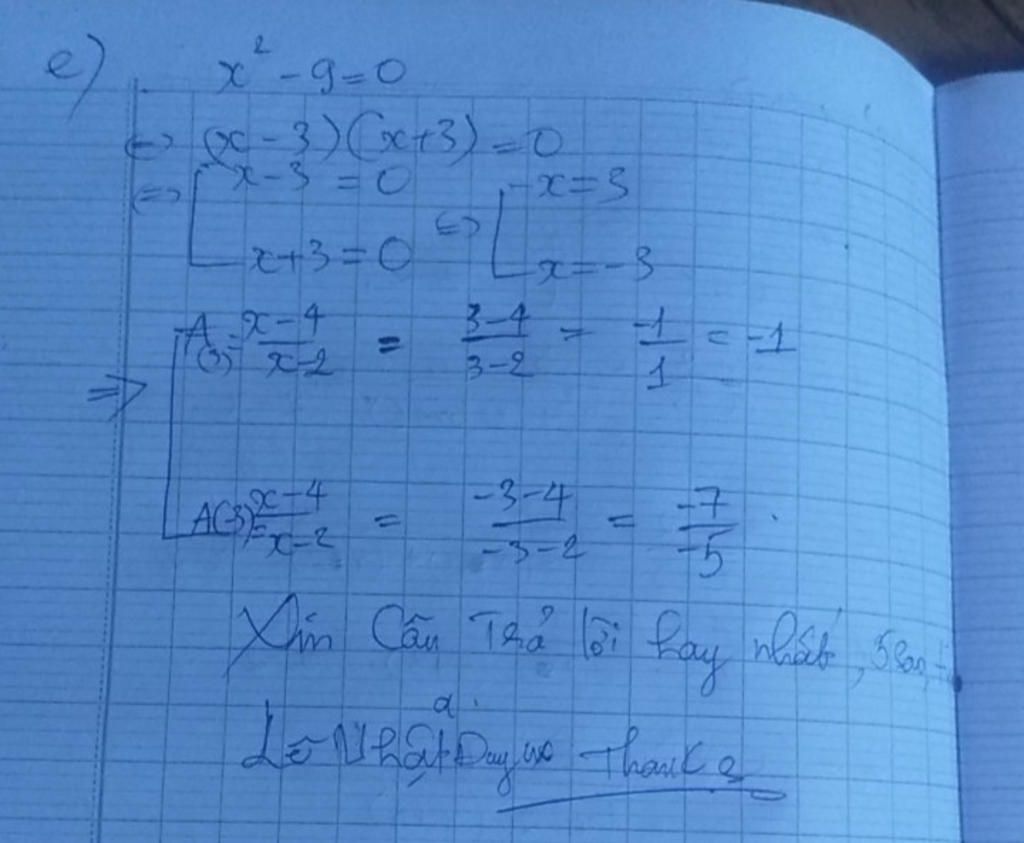 e) x² - 9 = 0
<=> (x - 3)(x + 3) = 0
<=> [ x - 3 = 0 <=> [ x = 3
x + 3 = 0 x = -3
=> [ A(3) = x - 4 / x - 2 = 3 - 4 / 3 - 2 = -1 / 1 = -1
A(-3) = x - 4 / x - 2 = -3 - 4 / -3 - 2 = -7 / -5 .
Xin Câu Trả lời hay nhất, 5
ạ.
Lê Nhật Duy